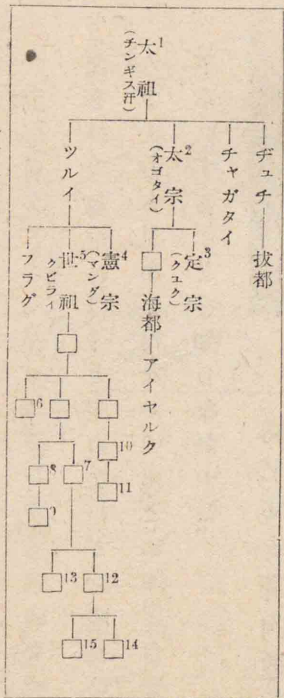 太祖1
(チンギス汗)
ヂュチ
拔都
チャガタイ
太宗2
(オゴタイ)
定宗3
(クユク)
□
海都
アイヤルク
ツルイ
憲宗4
(マング)
世祖5
クビライ
フラグ
□
□
□10
□11
□
□7
□12
□14
□15
□13
□8
□9
□6